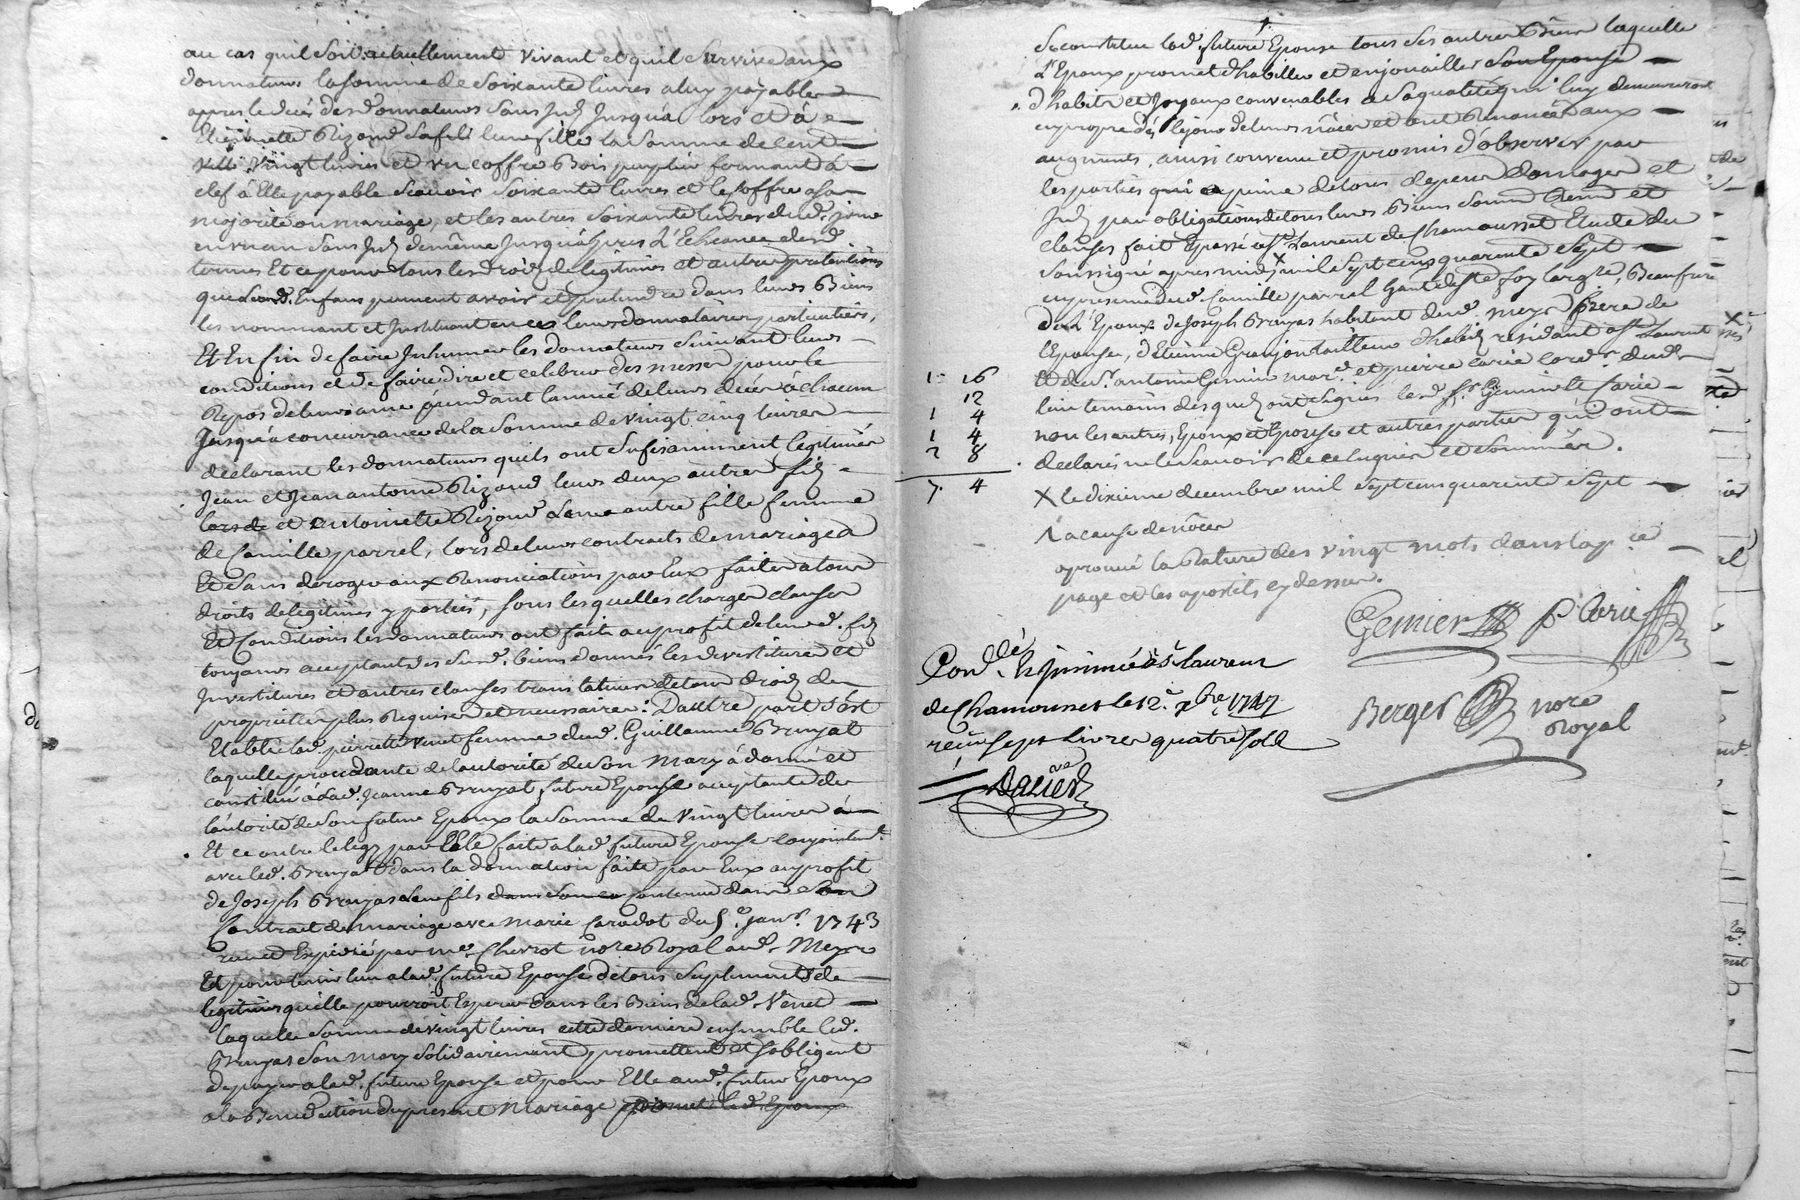 au cas quil soit actuellement vivant et quil survive aux
donnateurs la somme de soixante livres a luy payable
appres le decés des donnateurs sans jusqua lors et à
Rizond leur fille la somme de cent
vingt livres et un coffre bois peuplier fermant à
clef à Elle payable scavoir soixante livres et le coffre a sa
majorité ou mariage, et les autres soixante livres
en un an sans de même jusqu'apres L'Echeance desd.
termes Et ce pour tous les droits de legitimes et autres pretentions
que lesd. Enfans peuvent avoir et pretendre dans leurs Biens
les nommant et Instituant en ce leurs donnataires particuliers,
Et Enfin de faire Inhumer les donnateurs suivant leurs
conditions et de faire dire et celebrer des messes pour le
Repos de leurs ame pendant l'année de leurs decés à chacun
Jusqu'a concurrance de la somme de vingt cinq livres
declarant les donnateurs quils ont sufisamment legitimés
Jean et Jean antoine Rizond leurs deux autres fils
lors de et antoinette Rizond leur autre fille femme
de Camille parrel, lors de leurs contracts de mariages
Et sans deroger aux Renonciations par Eux faites a tous
droits de legitimes y portés, sous lesquelles charges clauses
Et Conditions les donnateurs ont fait au profit de leurd. fils
toujours acceptant des susd. biens donnés les devestitures et
Investitures et autres clauses translatives de tous droits de
proprietté plus Requises et necessaires: Dautre part s'est
Etablie lad. pierrette venet femme dud. Guillaume Bruyat
laquelle procedante de l'autorité de son Mary à donné et
constitué à Lad. Jeanne Bruyat future Epouse acceptante de
l'autorité de son futur Epoux la somme de Vingt livres à
Et ce outre le legs par Elle fait a lad. future Epouse conjointemt.
avec led. Bruyat dans la donnation faite par Eux au profit
de Joseph Bruyas leur fils contenue dans son
Contract de mariage avec marie Caradot du 5e janv. 1743
receu et Expedié par me. Chevrot nore Royal aud. Meys
Et pour tenir lieu a lad. future Epouse de tous suplements de
legitimes quelle pourroit Esperer dans les Biens de lad. Venet
laquelle somme de vingt livres cette derniere ensemble led.
Bruyas son mary solidairement promettent et s'obligent
de payer a lad. future Epouse et pour Elle aud. futur Epoux
a la Benediction du present Mariage promet led. Epoux
se constitue lad. future Epouse tous ses autres Biens laquelle
L'Epoux promet d'habiller et enjouailler son Epouse
d'habits et Joyaux convenables a sa qualité qui luy demeureront
en propre dés le jour de leurs nôces et ont Renoncé aux
augments, ainsi convenu et promis d'observer par
les parties qui a peine de tous depens domages et
par obligations de tous leurs Biens soumis Renon et
clauses fait Et passé a st. Laurent de Chamousset Etude du
soussigné apres midy X mil sept cens quarente sept
en presence dud. Camille parrel habt. de ste foy l'argre, Beaufrere
de L'Epoux de Joseph Bruyas habitant dud. meys frere de
l'Epouse, d'Etienne Granjon tailleur d'habits residant a st. Laurent
Et de sr. antoine Genier mard. et pierre Carié cord. dud.
lieu temoins desquels ont signés lesd. srs. Genier et Carié
non les autres, Epoux et Epouse et autres parties qui ont
declaré ne le scavoir de ce Enquis et sommés.
X le dixieme decembre mil sept cens quarente sept
1 16
12
1 4
1 4
2 8
7. 4
1 a cause de nôces
aprouvé la Rature des vingt mots dans la p.re
page et les apostils cy dessus.
Genier P Carié
Berger nore
Royal
Con.lé Insinué à st. Laurent
de Chamousset le 12.e Xbre 1747
reçu sept Livres quatre sols
Dazier